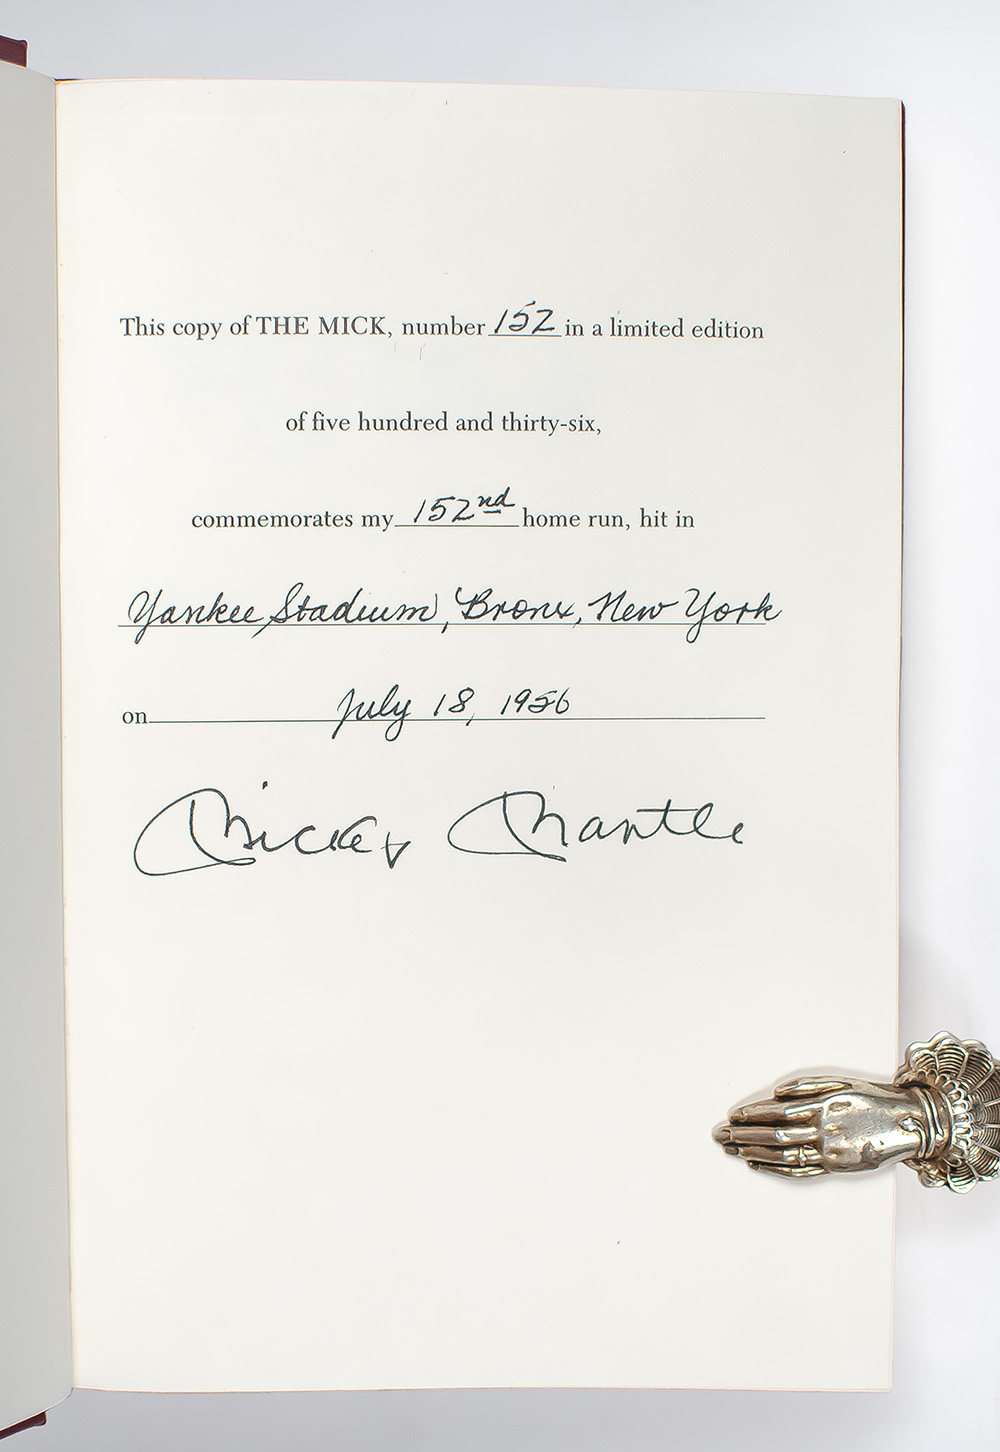 This copy of THE MICK, number 152 in a limited edition
of five hundred and thirty-six,
commemorates my 152nd home run, hit in
Yankee Stadium, Bronx, New York
on July 18, 1956
Mickey Mantle